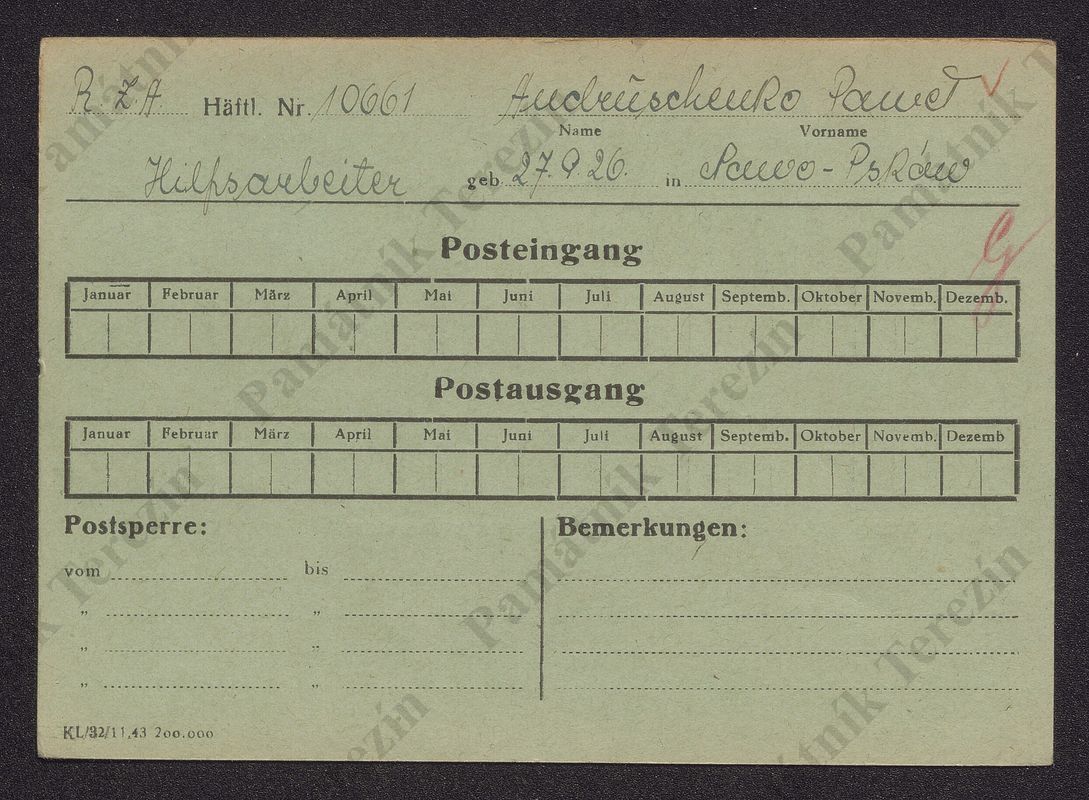 R. Z. A Häftl. Nr. 10661 Andruschenko Pawel
Name Vorname
Hilfsarbeiter geb 27.9.26. in Nowo-Pskow
Posteingang
Januar Februar März April Mai Juni Juli August Septemb. Oktober Novemb. Dezemb.
Postausgang
Januar Februar März April Mai Juni Juli August Septemb. Oktober Novemb. Dezemb
Postsperre: Bemerkungen:
vom bis
„ „
„ „
„ „
KL/32/11.43 200.000
Památník Terezín